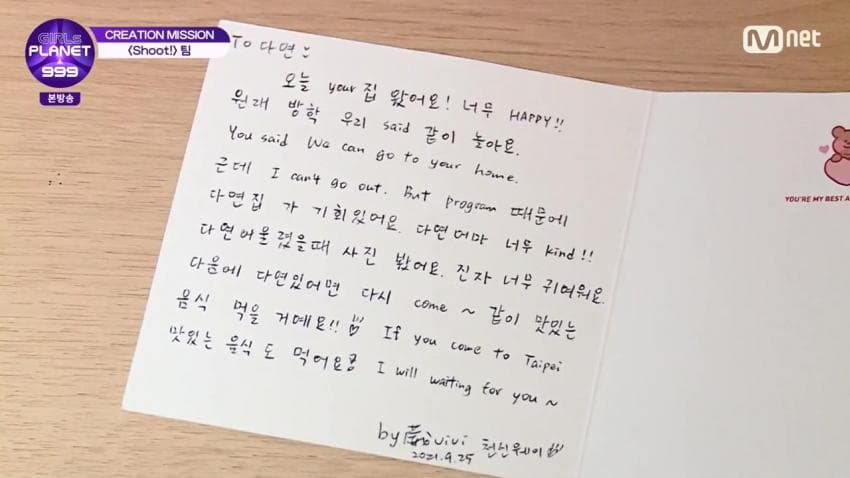 GIRLS
PLANET
999
본방송
CREATION MISSION
<Shoot!> 팀
Mnet
To 다면
오늘 your 집 왔어요! 너무 HAPPY!!
원래 방학 우리 said 같이 놀아요.
You said We can go to your home.
근데 I can't go out. But program 때문에
다면집 가 기회있어요. 다면어마 너무 kind!!
다면어울렸을때 사진 봤어요. 진자 너무 귀여워요.
다음에 다면있어면 다시 come ~ 같이 맛있는
음식 먹을 거예요!! If you come to Taipei
맛있는 음식도 먹어요 I will waiting for you ~
by vivi 천신웨이
2021.9.25
YOU'RE MY BEST A